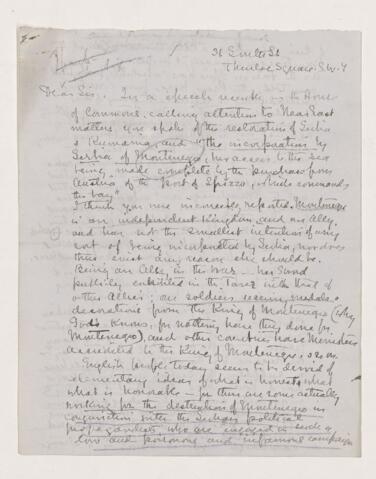 Thurloe Square. S.W. 7
Dear Sir. In a speech recently in the House
of Commons, calling attention to Near East
matters, you spoke of the restoration of Serbia
& Rumania and "the incorporation by
Serbia of Montenegro, her access to the sea
being made complete by the purchase from
Austria of the Port of Spizza, which commands
the bay"
I think you were incorrectly reported. Montenegro
is an independent Kingdom and an Ally
and has not the smallest intention of using
of being incorporated by Serbia, nor does
there exist any reason she should be.
Being an Ally in the war — her
publicly in the
other Allies; our soldiers receive medals &
decorations from the King of Montenegro (why
God knows, for nothing have they done for
Montenegro), and other countries have Ministers
accredited to the King of Montenegro,
English people today seem to be devoid of
elementary ideas of what is honest & what
what is honorable — for there are some actually
working for the destruction of Montenegro in
conjunction with the Serbian political
propagandists who are engaged in such a
low and poisonous and infamous campaign